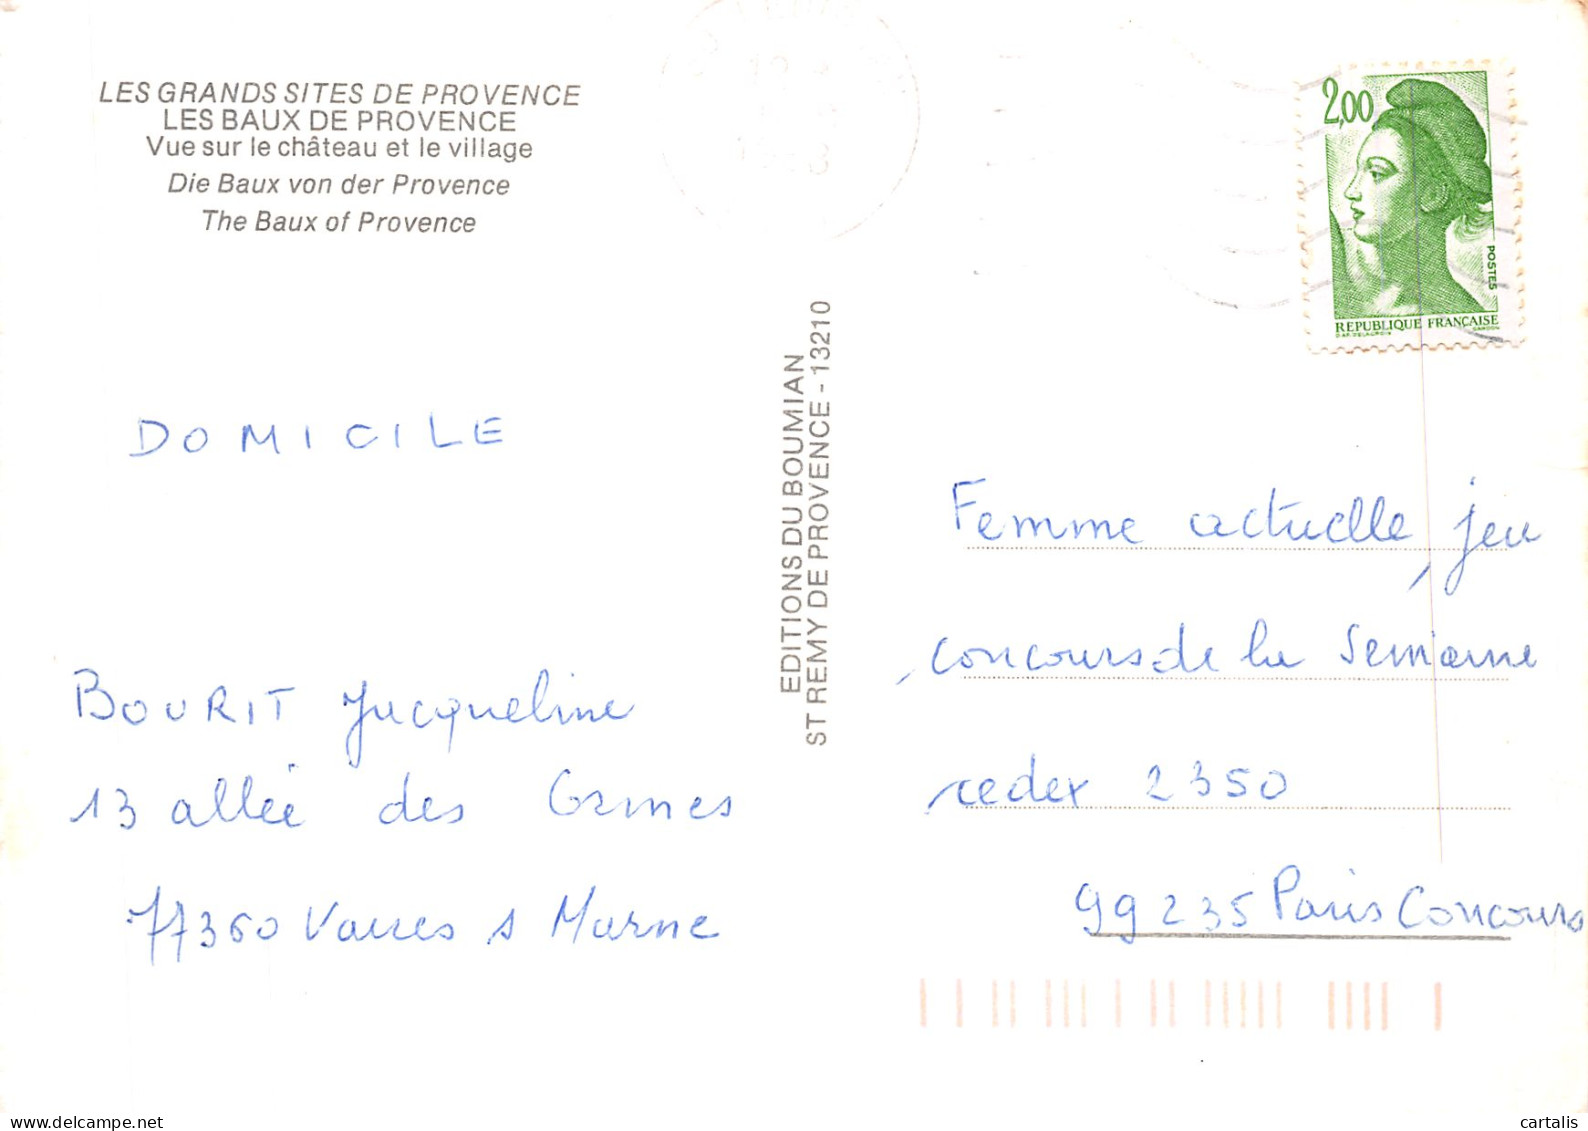 LES GRANDS SITES DE PROVENCE
LES BAUX DE PROVENCE
Vue sur le château et le village
Die Baux von der Provence
The Baux of Provence
DOMICILE
BOURIT Jacqueline
13 allée des Ormes
77360 Vaires s Marne
EDITIONS DU BOUMIAN
ST REMY DE PROVENCE - 13210
2,00
POSTES
REPUBLIQUE FRANÇAISE
Femme actuelle, jeu
concours de la Semaine
cedex 2350
99235 Paris Concours
www.cartalis.delcampe.net cartalis